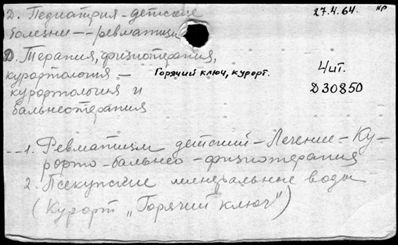 Д. Педиатрия - детские
болезни -- ревматизм
27.4.64.
Д. Терапия, физиотерапия,
курортология -
Горячий ключ, курорт.
курортология и
бальнеотерапия
4 ит.
Д30850
1. Ревматизм детский - Лечение - Ку-
рорто-бальнео-физиотерапия
2. Псекупские минеральные воды
(Курорт „Горячий ключ")